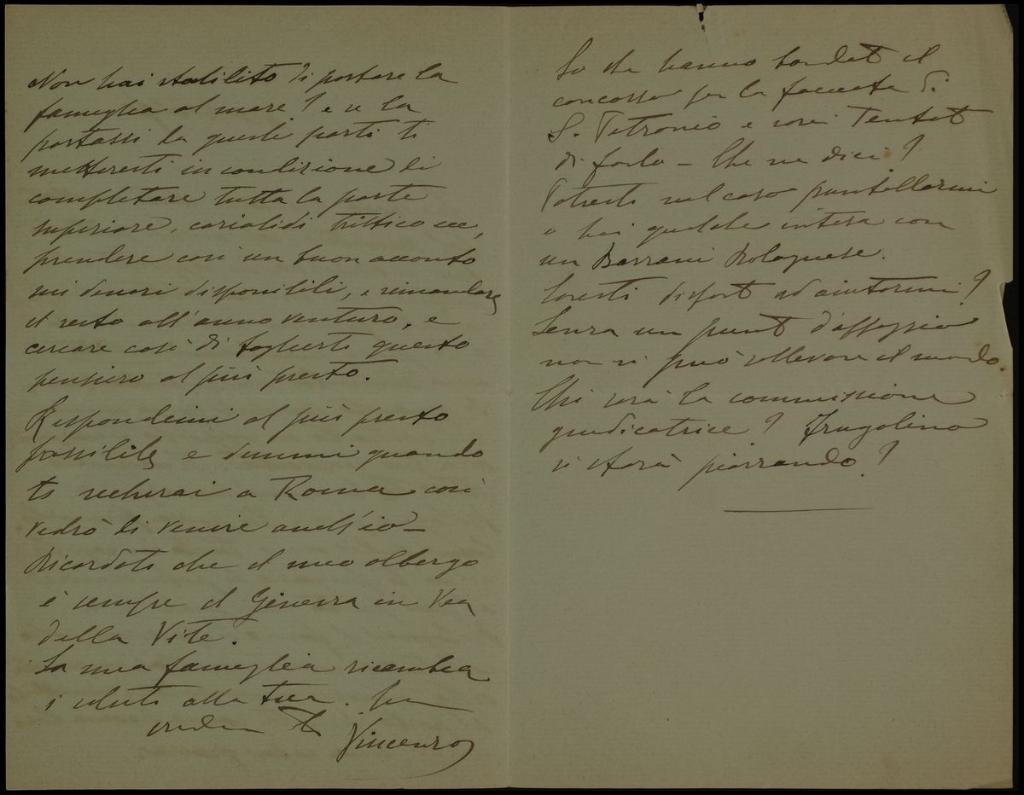 Non hai stabilito di portare la
famiglia al mare? e se la
portassi da queste parti ti
metteresti in condizione di
completare tutta la parte
superiore, cariatidi trittico ecc,
prendere così un buon acconto
sui denari disponibili, e rimandare
il resto all'anno venturo, e
cercare così di toglierti questo
pensiero al più presto.
Rispondimi al più presto
possibile e dimmi quando
ti recherai a Roma così
vedrò di venire anch'io –
Ricordati che il mio albergo
è sempre il Ginevra in Via
della Vite.
La mia famiglia ricambia
i saluti alla tua.
Vincenzo
So che hanno bandito il
concorso per la facciata di
S. Petronio e vorrei tentare
di farlo – Che ne dici?
Potresti nel caso puntellarmi
o hai qualche intesa con
un Barrani Bolognese.
Saresti disposto ad aiutarmi?
Senza un punto d'appoggio
non si può sollevare il mondo.
Chi sarà la commissione
giudicatrice? Frugolino
si starà piazzando?